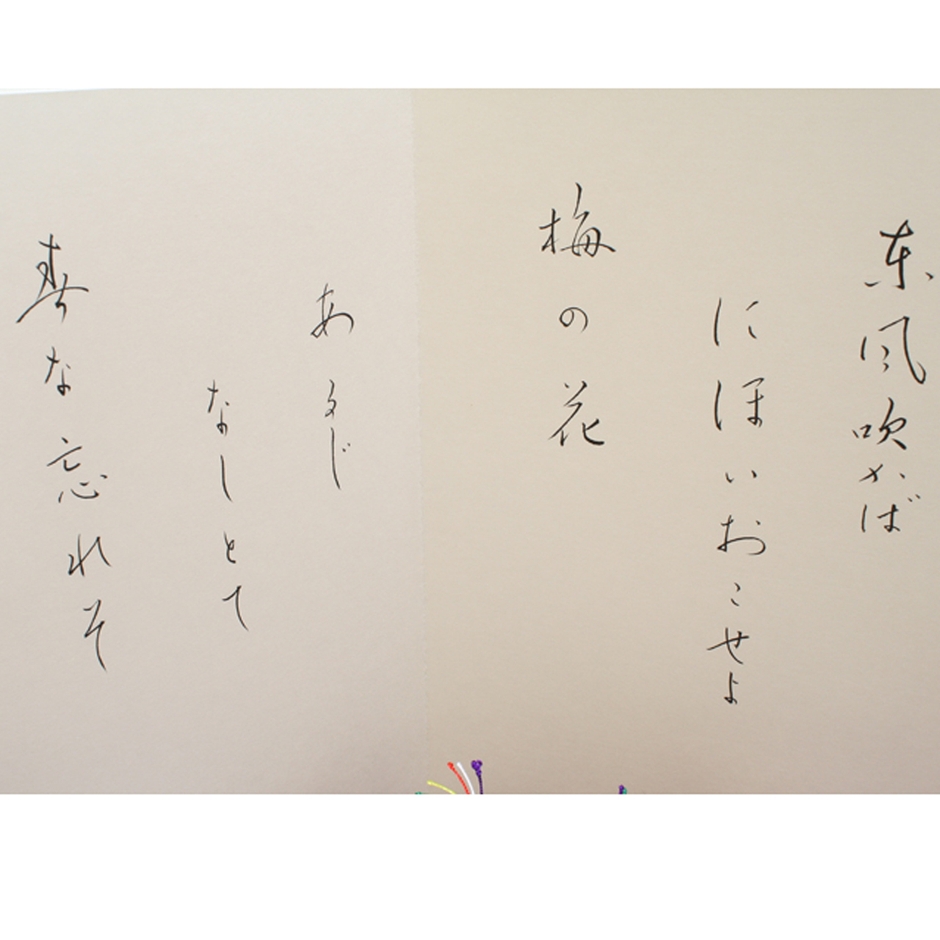 东風吹かば
にほいおこせよ
梅の花
あるじ
なしとて
春な忘れそ